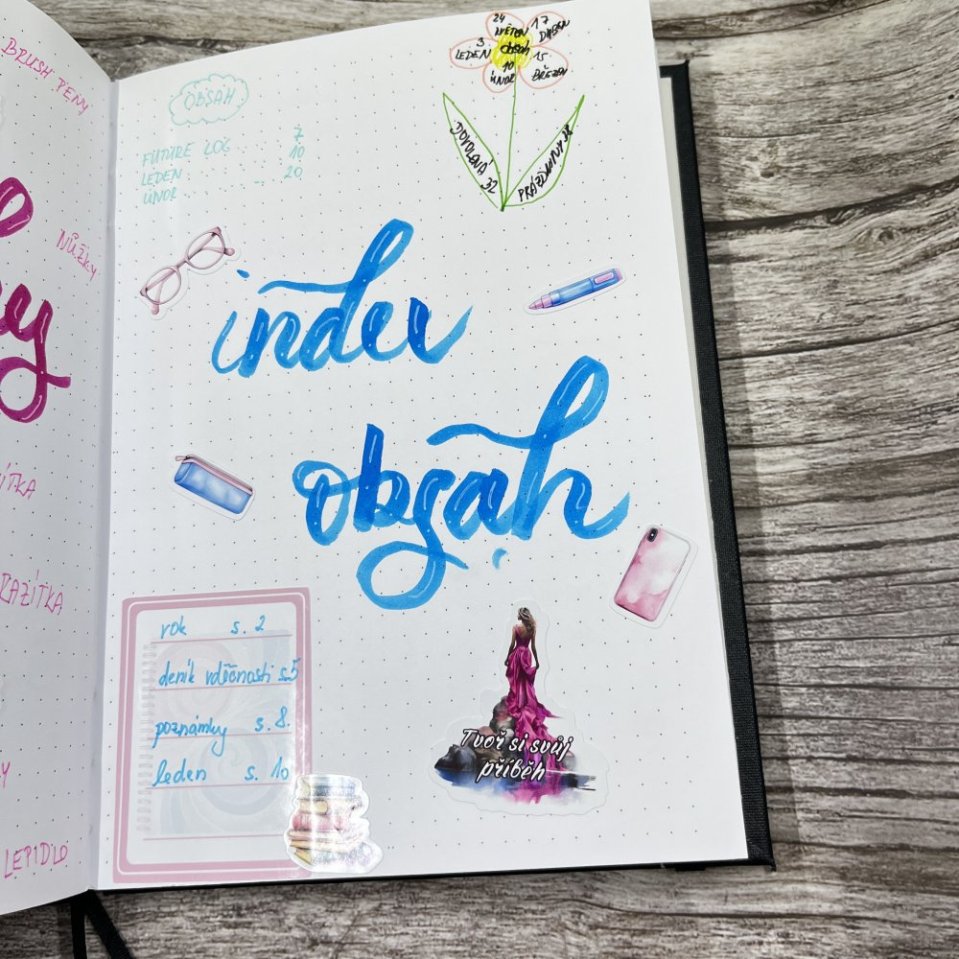 BRUSH PENY
NŮŽKY
RAZÍTKA
LEPIDLO
OBSAH
FUTURE LOG ... 7
LEDEN ... 10
ÚNOR ... 20
24
KVĚTEN
17
DUBEN
3.
LEDEN
obsah
15
BŘEZEN
10
ÚNOR
DOVOLENÁ 32
PRÁZDNINY 28
index
obsah
rok s. 2
deník vděčnosti s. 5
poznámky s. 8.
leden s. 10
Tvoř si svůj
příběh